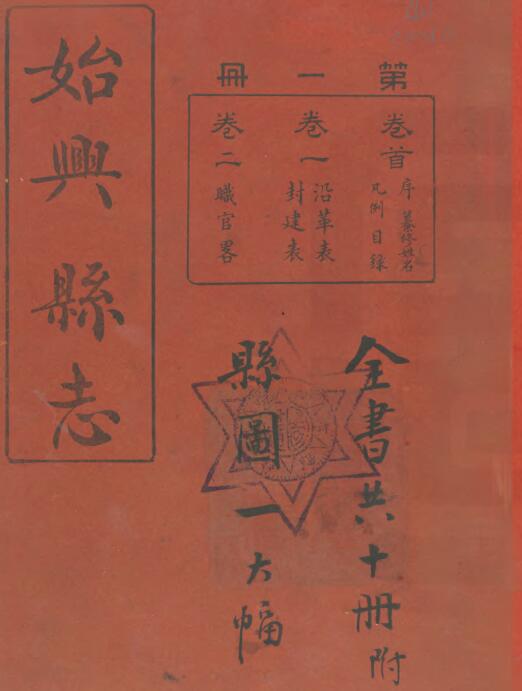 始興縣志
第一冊
卷首 序 纂修姓名
凡例 目錄
卷一 沿革表
封建表
卷二 職官畧
全書共十冊附
縣圖一大幅